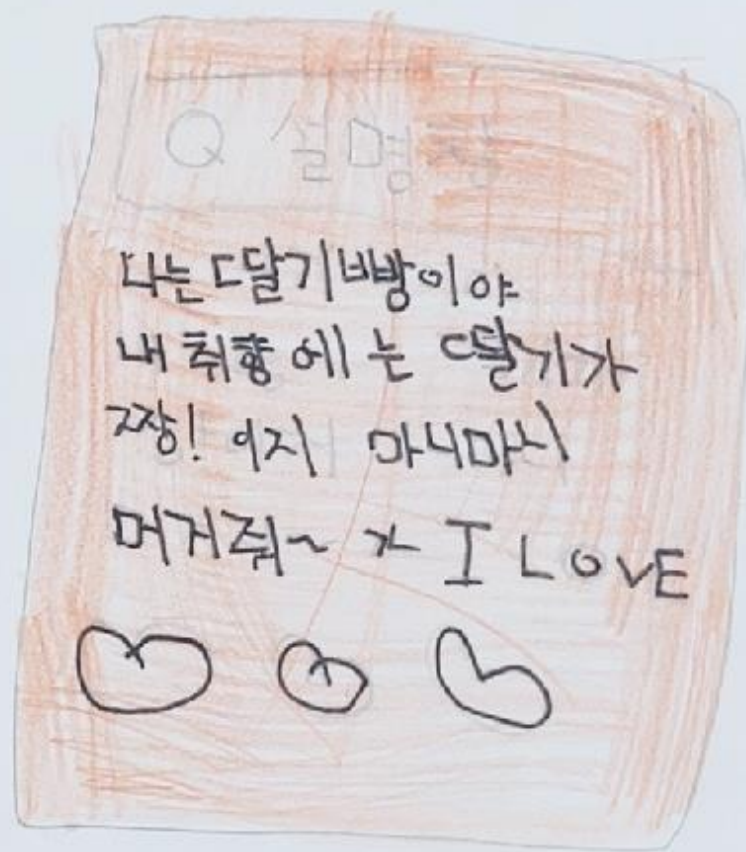 Q 설명
나는 딸기빵이야
내 취향에는 딸기가
짱! 이지 마니마니
머거줘~ ㅏ I LOVE